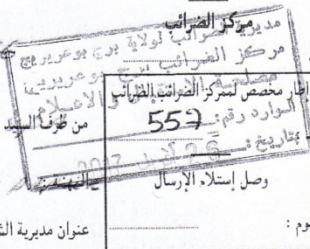 مركز الضرائب
مديرية الضرائب لولاية برج بوعريريج
مركز الضرائب برج بوعريريج
مصلحة الاستقبال و الاعلام
إطار مخصص لمركز الضرائب
الوارد رقم: 557
من طرف السيد
بتاريخ:
وصل إستلام الإرسال
يوم :
عنوان مديرية